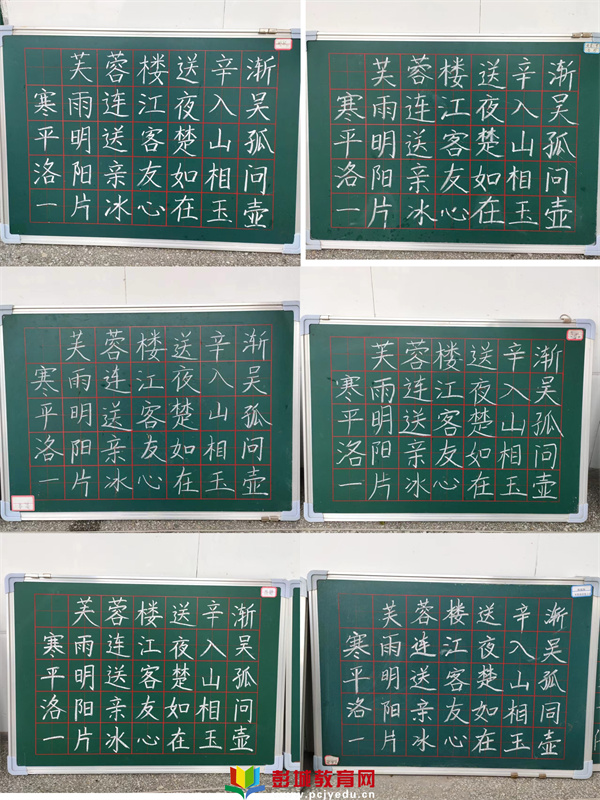 芙蓉楼送辛渐
寒雨连江夜入吴
平明送客楚山孤
洛阳亲友如相问
一片冰心在玉壶
芙蓉楼送辛渐
寒雨连江夜入吴
平明送客楚山孤
洛阳亲友如相问
一片冰心在玉壶
芙蓉楼送辛渐
寒雨连江夜入吴
平明送客楚山孤
洛阳亲友如相问
一片冰心在玉壶
芙蓉楼送辛渐
寒雨连江夜入吴
平明送客楚山孤
洛阳亲友如相问
一片冰心在玉壶
芙蓉楼送辛渐
寒雨连江夜入吴
平明送客楚山孤
洛阳亲友如相问
一片冰心在玉壶
芙蓉楼送辛渐
寒雨连江夜入吴
平明送客楚山孤
洛阳亲友如相同
一片冰心在玉壶
彭城教育网
www.pcjyedu.cn